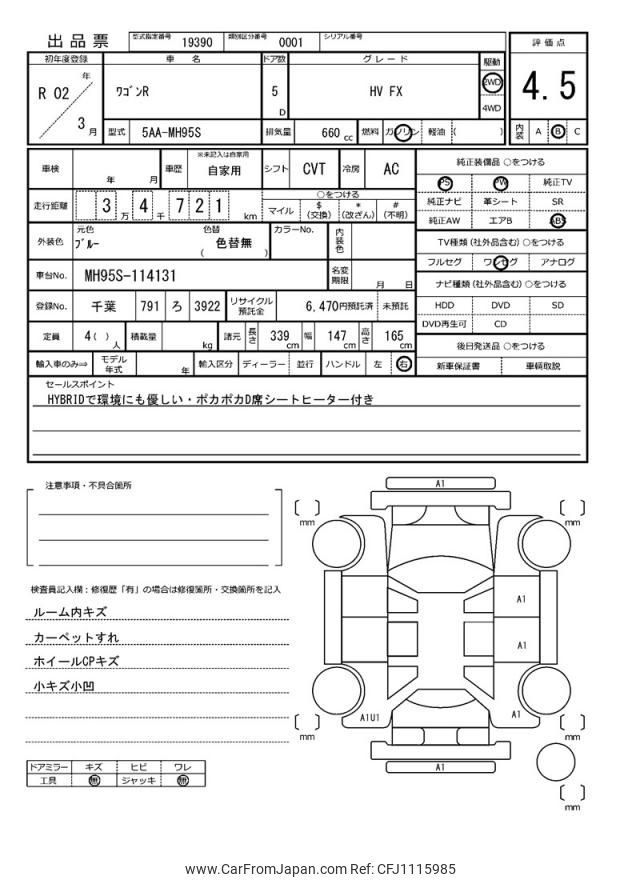 出品票 型式指定番号 19390 類別区分番号 0001 シリアル番号
評価点
4.5
内装 A B C
初年度登録 車名 ドア数 グレード 駆動
R 02 年 3 月
ワゴンR 5 D HV FX 2WD 4WD
型式 5AA-MH95S 排気量 660 cc 燃料 ガソリン 軽油 ( )
車検 年 月 車歴 ※未記入は自家用 自家用 シフト CVT 冷房 AC
走行距離 3 万 4 千 7 2 1 km
○をつける
マイル $(交換) *(改ざん) #(不明)
外装色 元色 ブルー 色替 ( 色替無 ) カラーNo. 内装色
車台No. MH95S-114131 名変期限 月 日
登録No. 千葉 791 ろ 3922 リサイクル預託金 6,470円預託済 未預託
定員 4( ) 人 積載量 kg 諸元 長さ 339 cm 幅 147 cm 高さ 165 cm
輸入車のみ⇒ モデル年式 年 輸入区分 ディーラー 並行 ハンドル 左 右
純正装備品 ○をつける
PS PW 純正TV
純正ナビ 革シート SR
純正AW エアB ABS
TV種類(社外品含む) ○をつける
フルセグ ワンセグ アナログ
ナビ種類(社外品含む) ○をつける
HDD DVD SD
DVD再生可 CD
後日発送品 ○をつける
新車保証書 車輌取説
セールスポイント
HYBRIDで環境にも優しい・ポカポカD席シートヒーター付き
注意事項・不具合箇所
検査員記入欄:修復歴「有」の場合は修復箇所・交換箇所を記入
ルーム内キズ
カーペットすれ
ホイールCPキズ
小キズ小凹
ドアミラー キズ ヒビ ワレ
工具 無 ジャッキ 無
A1
[ ] mm
[ ] mm
A1
A1
A1U1
A1
[ ] mm
[ ] mm
A1
[ ] mm
www.CarFromJapan.com Ref: CFJ1115985